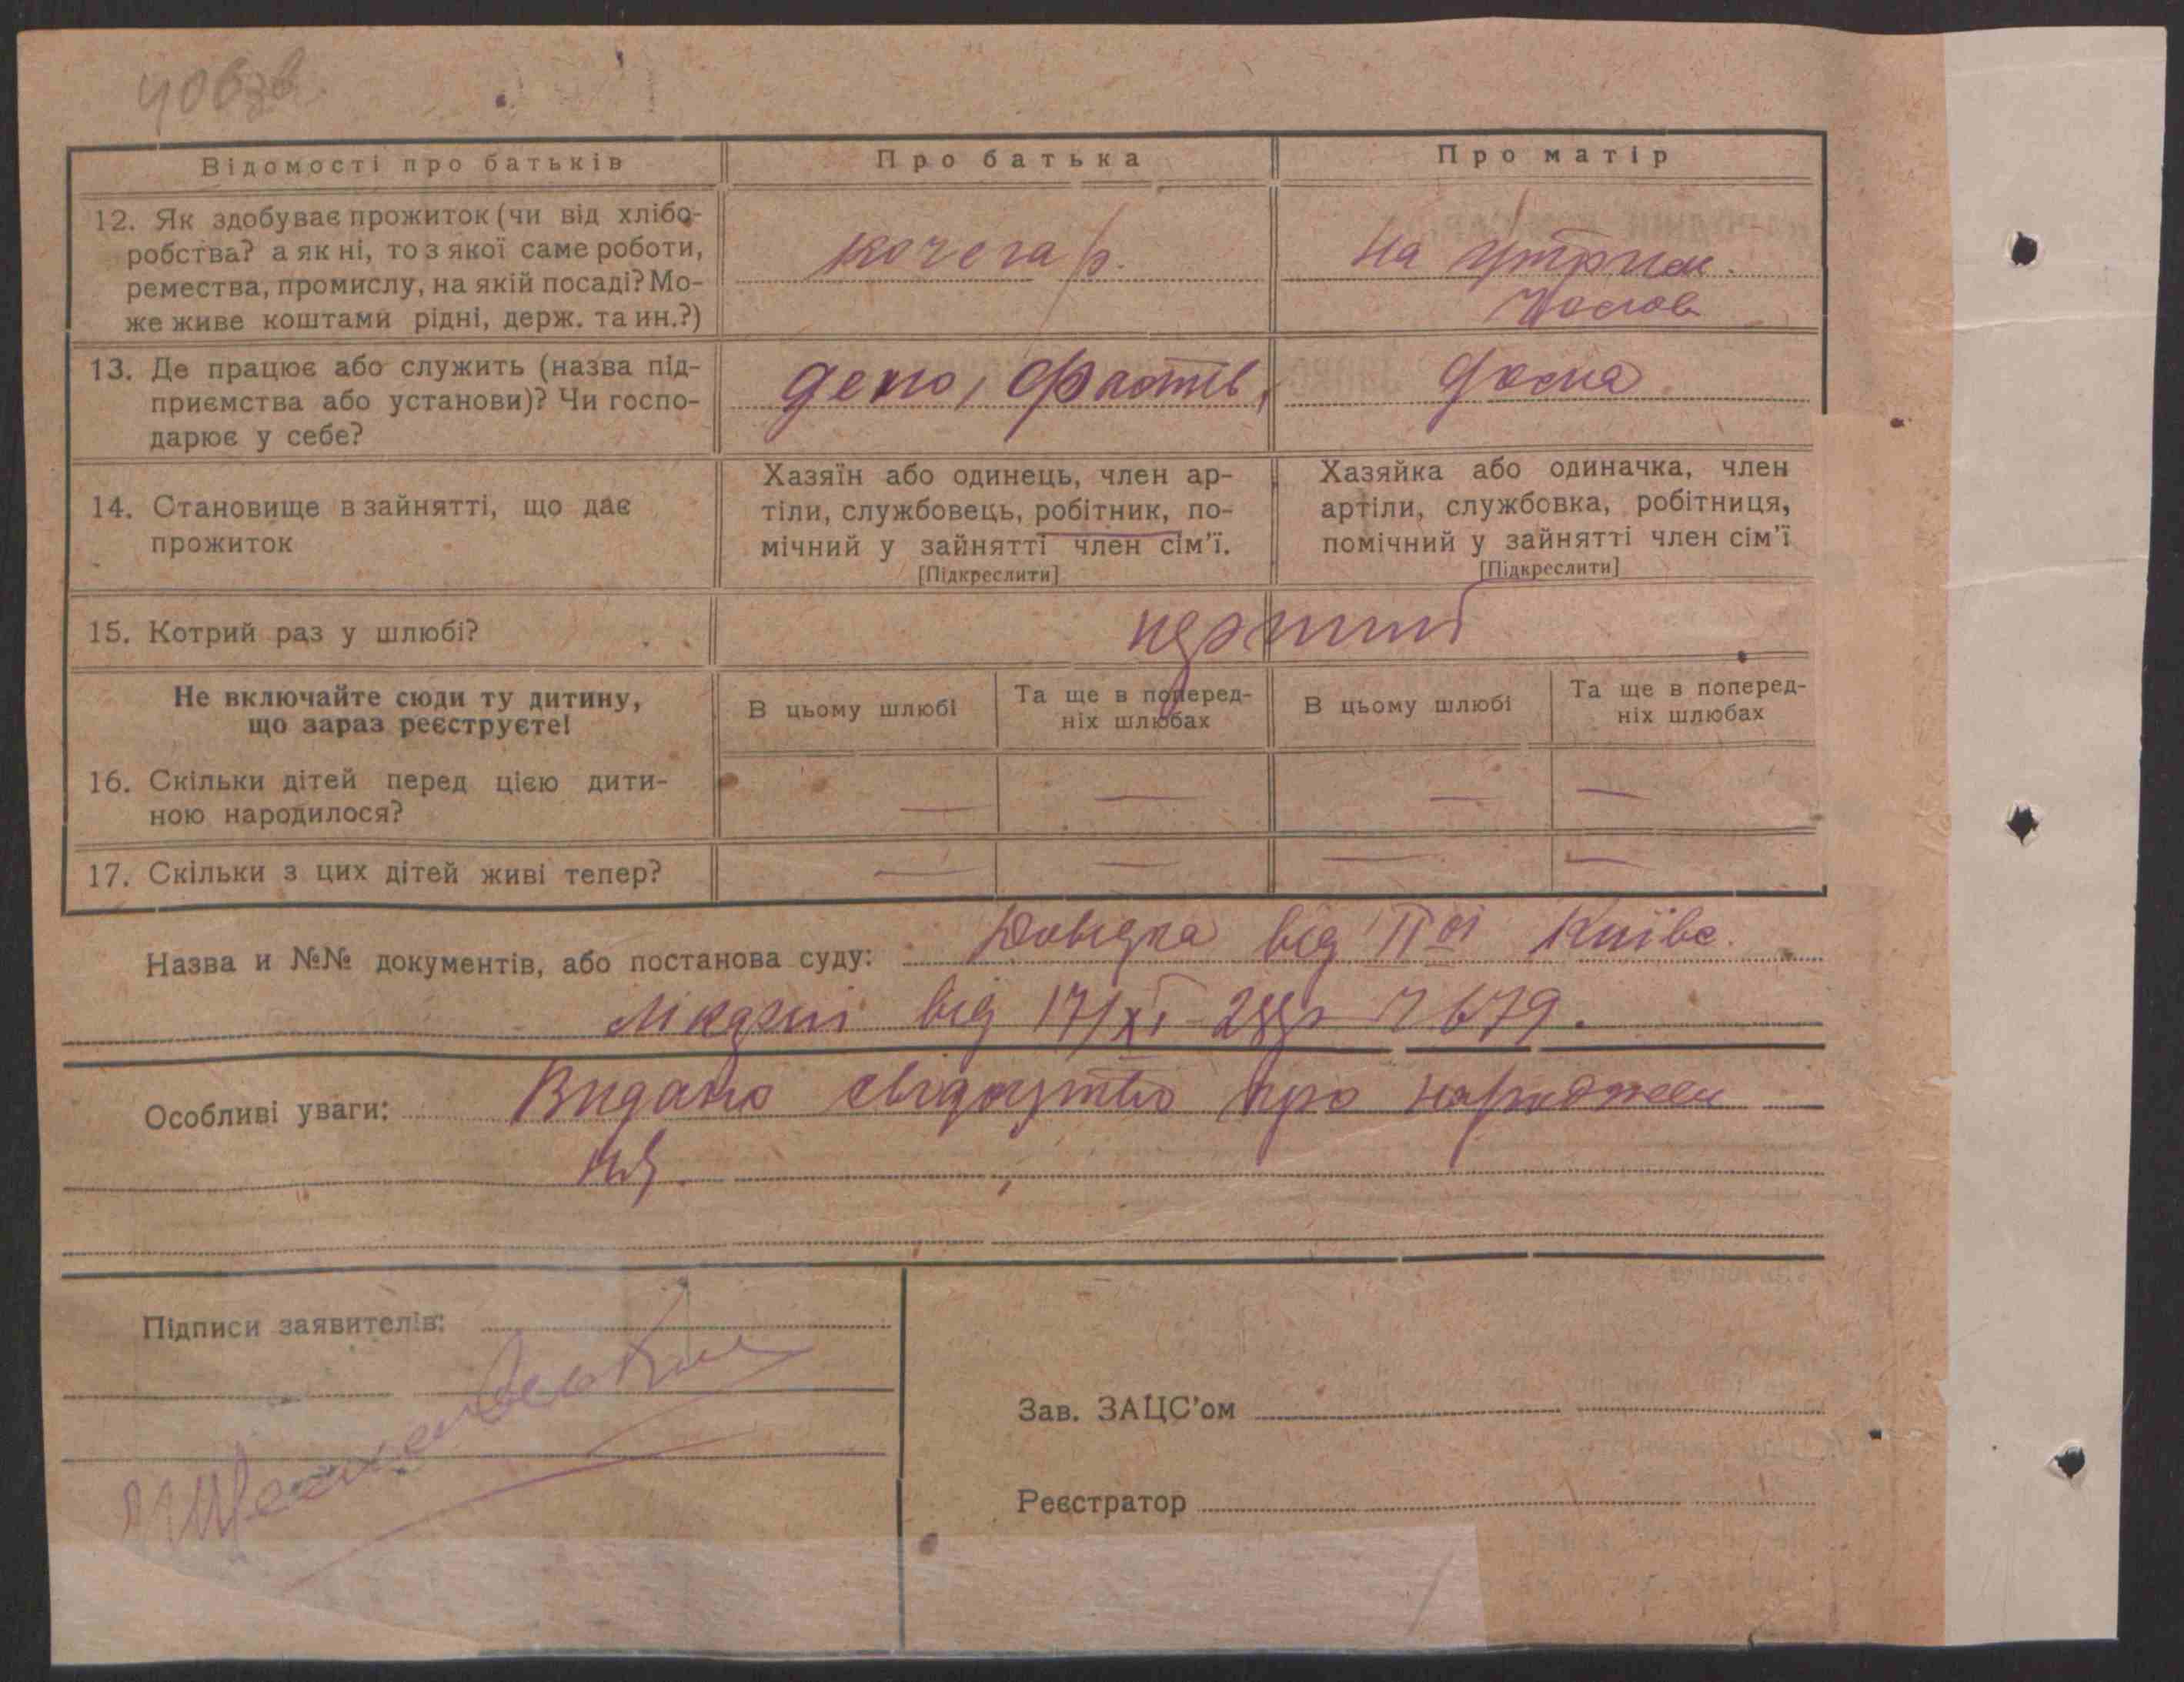 Відомості про батьків
Про батька
Про матір
12. Як здобуває прожиток (чи від хлібо-
робства? а як ні, то з якої саме роботи,
ремества, промислу, на якій посаді? Мо-
же живе коштами рідні, держ. та ин.?)
кочегар.
на утриман.
13. Де працює або служить (назва під-
приємства або установи)? Чи госпо-
дарює у себе?
депо, Фастів,
дома
14. Становище в зайнятті, що дає
прожиток
Хазяїн або одинець, член ар-
тіли, службовець, робітник, по-
мічний у зайнятті член сім'ї.
[Підкреслити]
Хазяйка або одиначка, член
артіли, службовка, робітниця,
помічний у зайнятті член сім'ї
[Підкреслити]
15. Котрий раз у шлюбі?
перший
Не включайте сюди ту дитину,
що зараз реєструєте!
В цьому шлюбі
Та ще в поперед-
ніх шлюбах
В цьому шлюбі
Та ще в поперед-
ніх шлюбах
16. Скільки дітей перед цією дити-
ною народилося?
— — — —
17. Скільки з цих дітей живі тепер?
— — — —
Назва и №№ документів, або постанова суду: Довідка від ІІ ої Київс.
Лікарні від 17/XI
Особливі уваги: Видано свідоцтво про народжен
ня
Підписи заявителів:
Зав. ЗАЦС'ом
Реєстратор